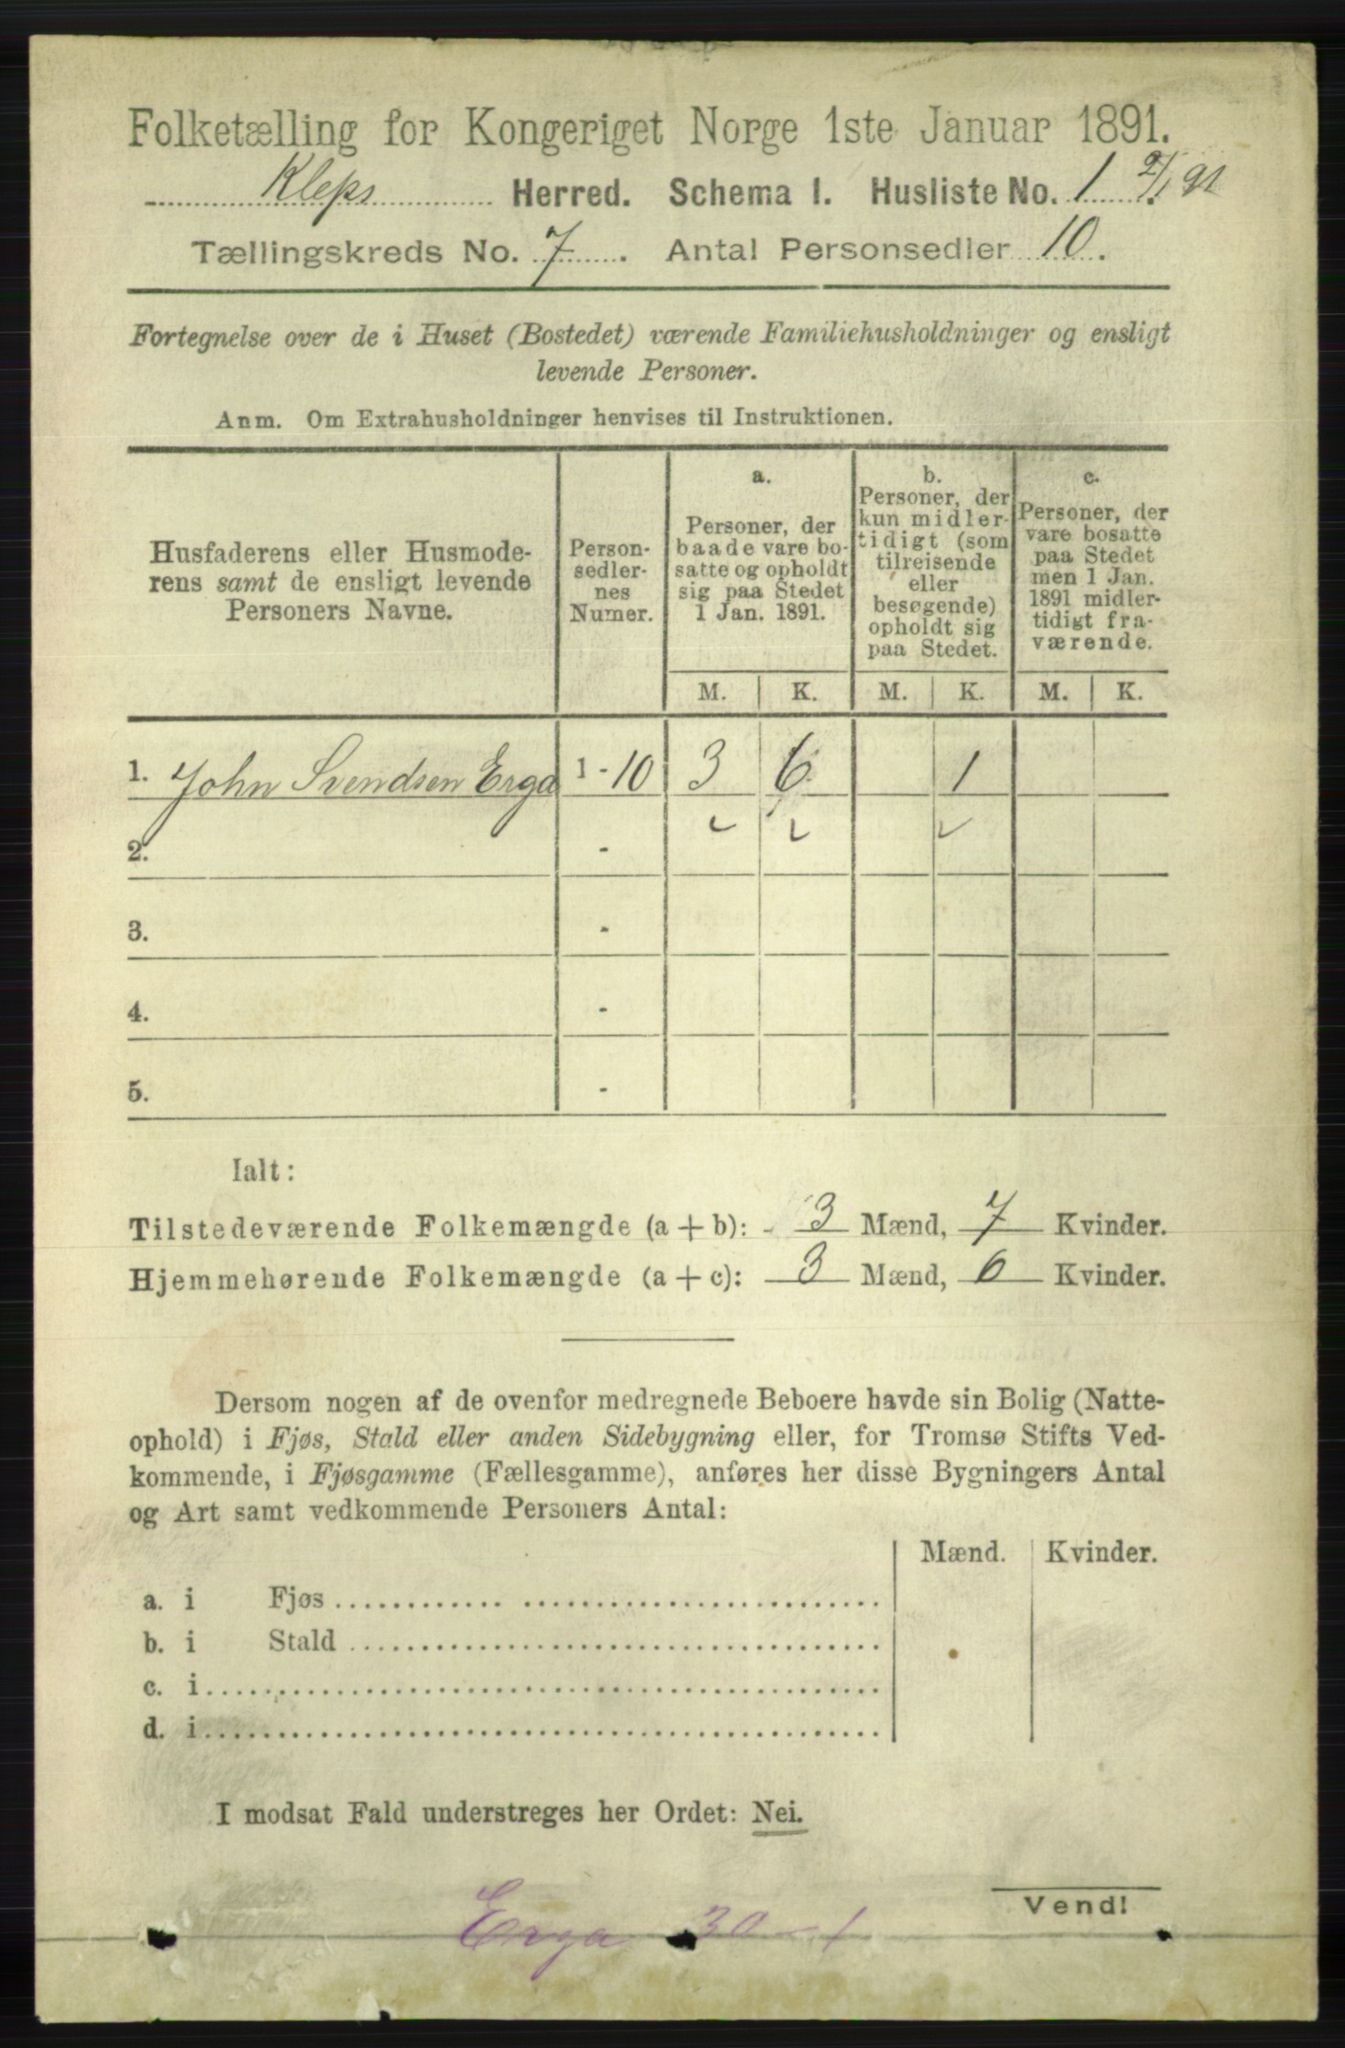 Folketælling for Kongeriget Norge 1ste Januar 1891.
Kleps Herred. Schema I. Husliste No. 1. 2/1 91
Tællingskreds No. 7. Antal Personsedler 10.
Fortegnelse over de i Huset (Bostedet) værende Familiehusholdninger og ensligt
levende Personer.
Anm. Om Extrahusholdninger henvises til Instruktionen.
Husfaderens eller Husmode-
rens samt de ensligt levende
Personers Navne.
Person-
sedler-
nes
Numer.
a.
Personer, der
baade vare bo-
satte og opholdt
sig paa Stedet
1 Jan. 1891.
b.
Personer, der
kun midler-
tidigt (som
tilreisende
eller
besøgende)
opholdt sig
paa Stedet.
c.
Personer, der
vare bosatte
paa Stedet
men 1 Jan.
1891 midler-
tidigt fra-
værende.
M. K. M. K. M. K.
1. John Svendsen Erga 1 - 10 3 6 1
2. -
3. -
4. -
5. -
Ialt:
Tilstedeværende Folkemængde (a + b): 3 Mænd, 7 Kvinder.
Hjemmehørende Folkemængde (a + c): 3 Mænd, 6 Kvinder.
Dersom nogen af de ovenfor medregnede Beboere havde sin Bolig (Natte-
ophold) i Fjøs, Stald eller anden Sidebygning eller, for Tromsø Stifts Ved-
kommende, i Fjøsgamme (Fællesgamme), anføres her disse Bygningers Antal
og Art samt vedkommende Personers Antal:
Mænd. Kvinder.
a. i Fjøs
b. i Stald
c. i
d. i
I modsat Fald understreges her Ordet: Nei.
Vend!
Erga 30-1